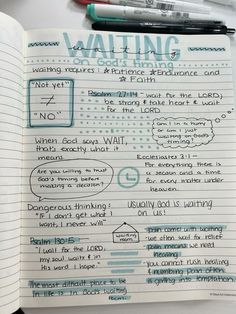 WAITING
on God's timing
waiting requires: ☆Patience ☆Endurance and
☆Faith
"Not yet"
≠
"NO"
Psalm 27:14 - "wait for the LORD;
be strong & take heart & wait
for the LORD.
Am I in a hurry
or am I just
waiting on God's
timing?
When God says WAIT,
that's exactly what it
means.
Ecclesiastes 3:1 -
For everything there is
a season and a time
for every matter under
heaven.
Are you willing to trust
God's timing before
making a decision?
Dangerous thinking:
"If I don't get what I
want, I never will"
Usually God is waiting
on us!
Psalm 130:5
"I wait for the LORD,
my soul waits & in
His word I hope."
waiting
room
pain comes with waiting
we often wait for relief
pain means we need
healing
you cannot rush healing
& numbing pain often
is giving into temptation
The most difficult place to be
in life is in God's waiting
room.